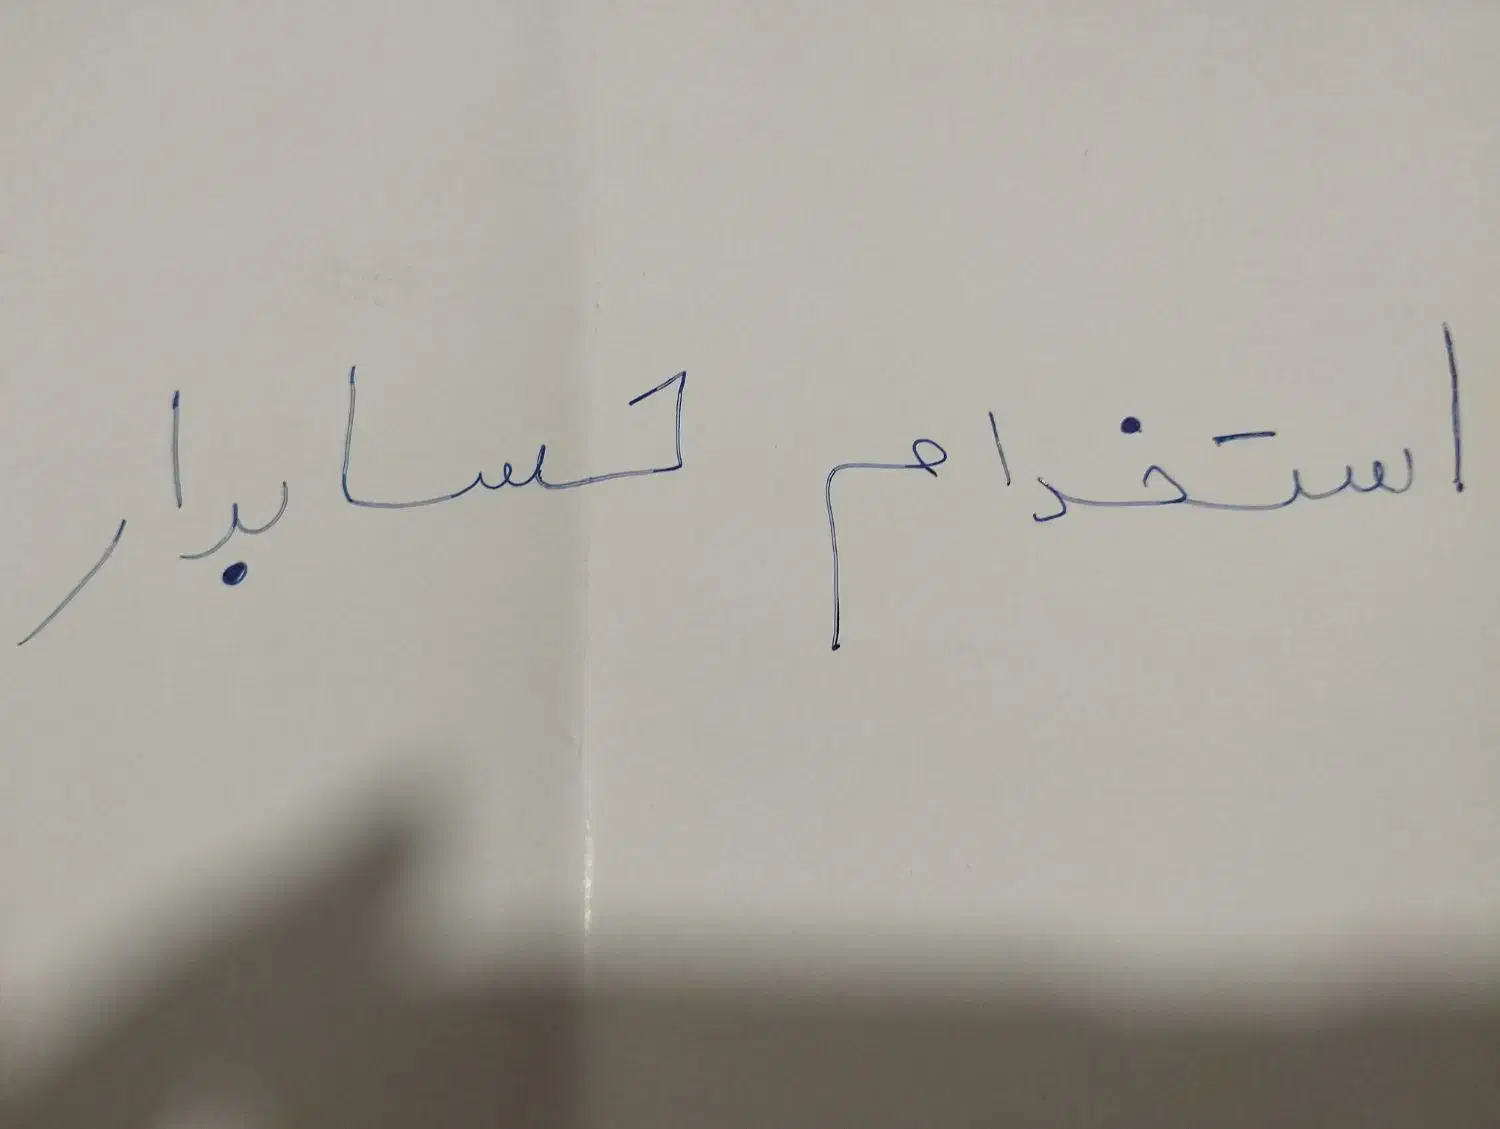 استخدام حسابدار